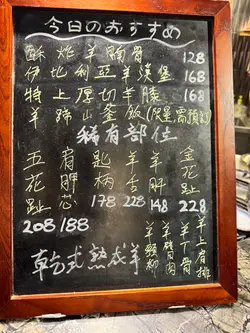 今日のおすすめ
酥炸羊胸骨 128
伊比利亞羊漢堡 168
特上厚切羊膝 168
羊蹄山釜飯(限量需預訂)
稀有部位
五花趾 208
肩胛芯 188
匙柄 178
羊舌 228
羊肝 148
金花趾 228
乾式熟成羊
羊頰柳
羊臂肉
羊丁骨
羊上肩排